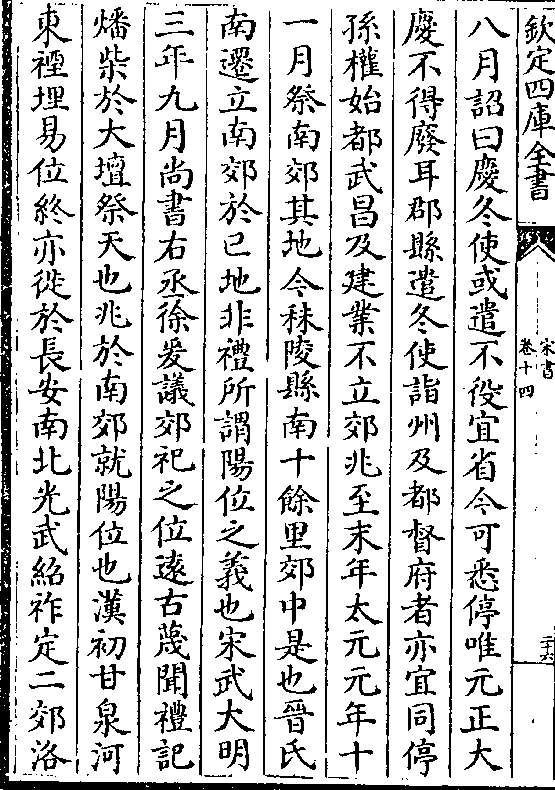 欽定四庫全書
宋書
卷十四
八月詔曰慶冬使或遣不役宜省今可悉停唯元正大
慶不得廢耳郡縣遣冬使詣州及都督府者亦宜同停
孫權始都武昌及建業不立郊兆至末年太元元年十
一月祭南郊其地今秣陵縣南十餘里郊中是也晉氏
南遷立南郊於巳地非禮所謂陽位之義也宋武大明
三年九月尚書右丞徐爰議郊祀之位遠古蔑聞禮記
燔柴於大壇祭天也兆於南郊就陽位也漢初甘泉河
東禋埋易位終亦徙於長安南北光武紹祚定二郊洛